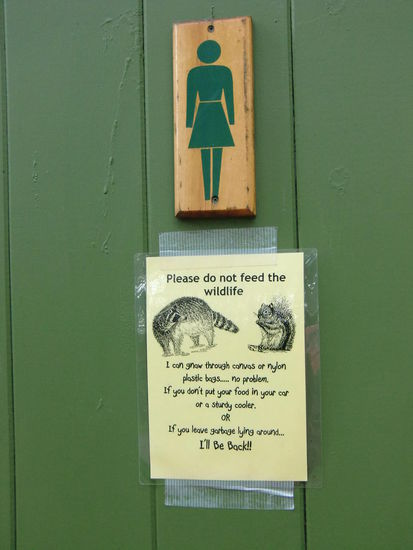 Please do not feed the
wildlife
I can gnaw through canvas or nylon
plastic bags..... no problem.
If you don't put your food in your car
or a sturdy cooler.
OR
If you leave garbage lying around...
I'll Be Back!!